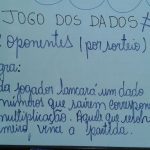 JOGO DOS DADOS
oponentes (por sorteio)
gra:
da jogador lancará um dado
numinhos que sairem correspon
multiplicação. Aquele que resol
meiro, vence a partida.